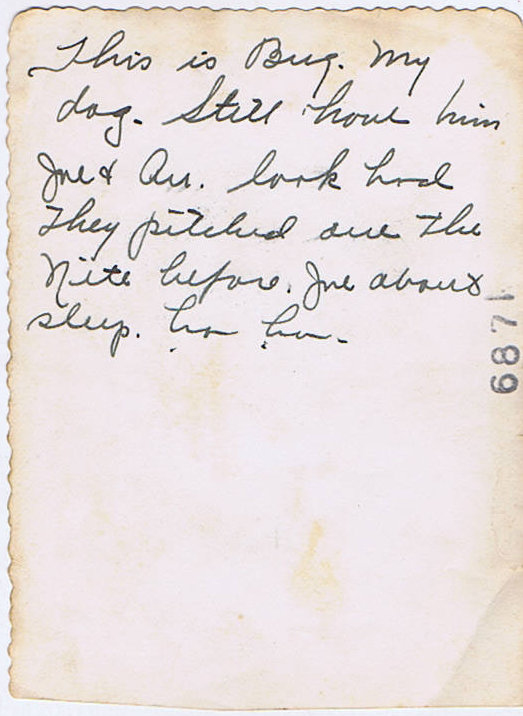 This is Bug. My
dog. Still have him
Joe & look bad
They pitched one the
Nite before. Joe about
sleep. ha ha.
6871